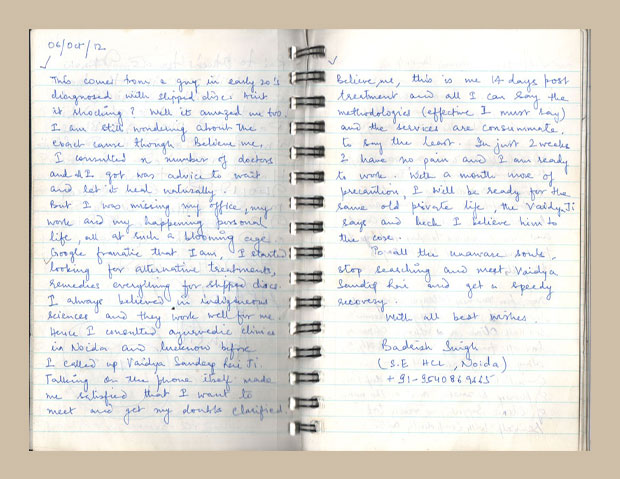 06/Oct/12
This comes from a guy in early 20's
diagnosed with slipped disc. Aint
it shocking? Well it amazed me too.
I am still wondering about the
exact cause though. Believe me,
I consulted n number of doctors
and all I got was advice to wait
and let it heal naturally.
But I was missing my office, my
work and my happening personal
life, all at such a blooming age.
Google franatic that I am, I started
looking for alternative treatments,
remedies everything for slipped discs.
I always believed in indigeneous
sciences and they work well for me.
Hence I consulted ayurvedic clinics
in Noida and lucknow before
I called up Vaidya Sandeep Rai Ji.
Talking on the phone itself made
me satisfied that I want to
meet and get my doubts clarified.
Believe me, this is me 14 days post
treatment and all I can say the
methodologies (effective I must say)
and the services are consummate,
to say the least. In just 2 weeks
I have no pain and I am ready
to work. With a month more of
precaution, I will be ready for the
same old private life, the Vaidya Ji
says and heck I believe him to
the core.
To all the unaware souls,
stop searching and meet Vaidya
Sandip Rai and get a speedy
recovery.
With all best wishes.
Badrish Singh
(S.E HCL, Noida)